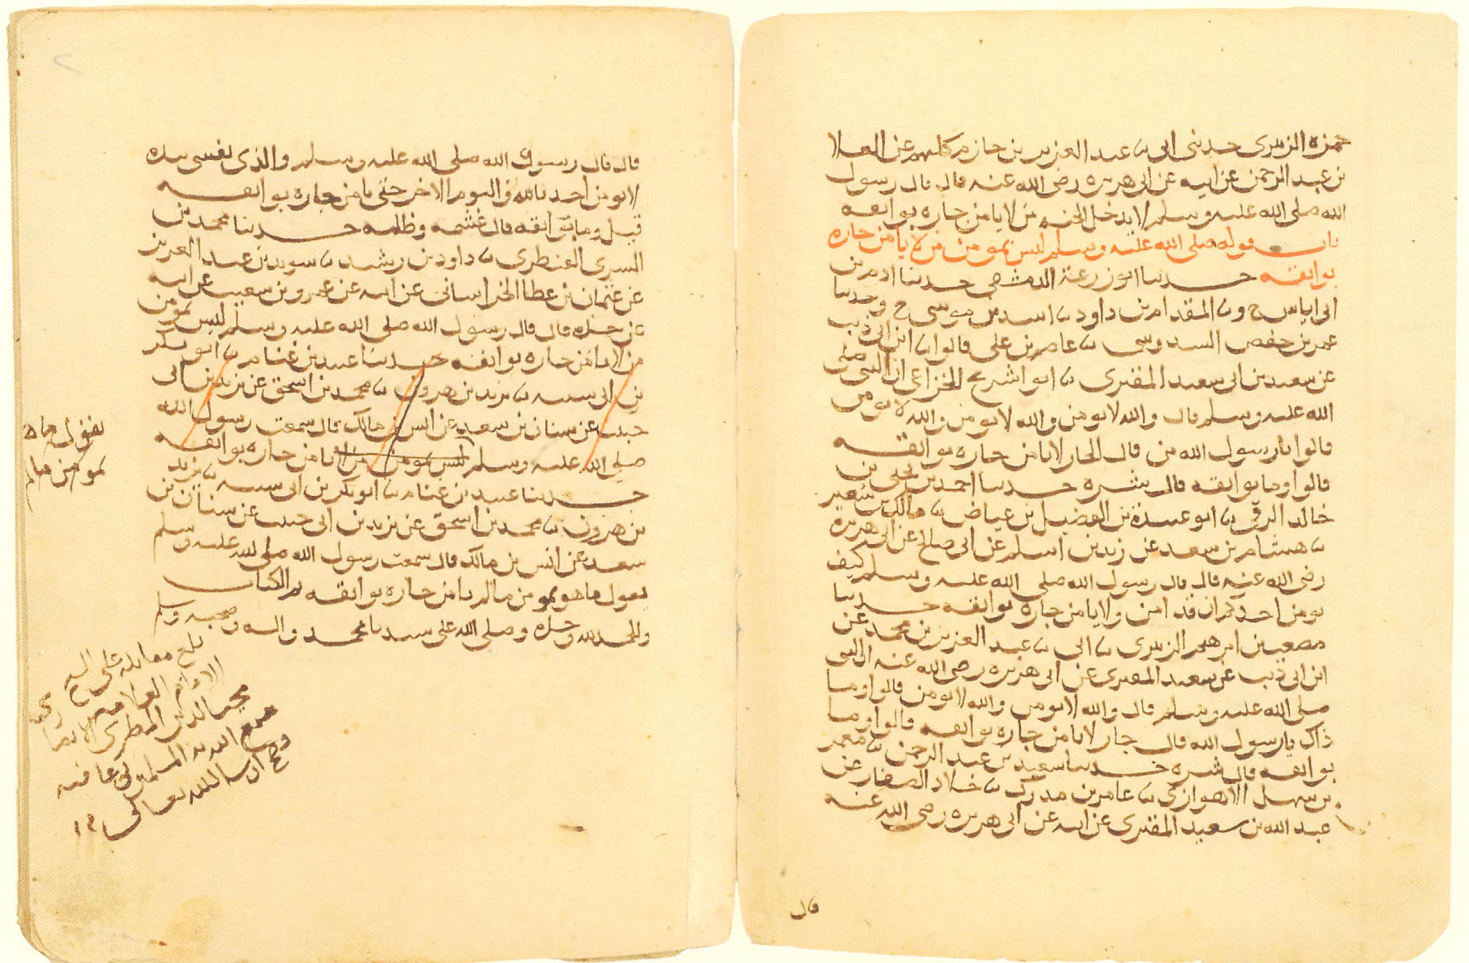 حمزه الزبيرى حدثنى ابى نا عبد العزيز بن حازم كلهم عن العلا
بن عبد الرحمن عن ابيه عن ابى هريره رضى الله عنه قال قال رسول
الله صلى الله عليه وسلم لا يدخل الجنه من لا يامن جاره بوائقه
باب قوله صلى الله عليه وسلم ليس بمومن من لا يامن جاره
بوائقه حدثنا ابو زرعة الدمشقى حدثنا ادم بن
ابى اياس ح ونا المقدام بن داود نا اسد بن موسى ح وحدثنا
عمر بن حفص السدوسى نا عاصم بن على قالوا نا ابن ابى ذيب
عن سعيد بن ابى سعيد المقبرى نا ابو اشريح الخزاعى ان النبى صلى
الله عليه وسلم قال والله لا يومن والله لا يومن والله لا يومن
قالوا يا رسول الله من قال الجار لا يامن جاره بوائقه
قالوا وما بوائقه قال شره حدثنا احمد بن يحيى بن
خالد الرقى نا ابو عبيدة بن الفضيل بن عياض نا مالك بن سعير
نا هشام بن سعد عن زيد بن اسلم عن ابى صالح عن ابى هريره
رضى الله عنه قال قال رسول الله صلى الله عليه وسلم كيف
يومن احدكم ان قد امن ولا يامن جاره بوائقه حدثنا
مصعب بن ابرهيم الزبيرى نا ابى نا عبد العزيز بن محمد عن
ابن ابى ذيب عن سعيد المقبرى عن ابى هريره رضى الله عنه ان النبى
صلى الله عليه وسلم قال والله لا يومن والله لا يومن قالوا وما
ذاك يا رسول الله قال جار لا يامن جاره بوائقه قالوا وما
بوائقه قال شره حدثنا سعيد بن عبد الرحمن نا معمر
بن سهل الاهوازى نا عامر بن مدرك نا خلاد الصفار عن
عبد الله بن سعيد المقبرى عن ابيه عن ابى هريره رضى الله عنه
قال
قال قال رسول الله صلى الله عليه وسلم والذى نفسى بيده
لا يومن احد بالله واليوم الاخر حتى يامن جاره بوائقه
قيل وما بوائقه قال غشمه وظلمه حدثنا محمد بن
السرى القنطرى نا داود بن رشيد نا سويد بن عبد العزيز
عن عثمان بن عطا الخراسانى عن ابيه عن عمرو بن سعيب عن ابيه
عن جده قال قال رسول الله صلى الله عليه وسلم ليس بمومن
من لا يامن جاره بوائقه حدثنا عبيد بن غنام نا ابو بكر
بن ابى سيبه نا يزيد بن هرون نا محمد بن اسحق عن يزيد بن ابى
حبيب عن سنان بن سعد عن انس بن مالك قال سمعت رسول الله
صلى الله عليه وسلم ليس بمومن من لا يامن جاره بوائقه
حدثنا عبيد بن غنام نا ابو بكر بن ابى سيبه نا يزيد
بن هرون نا محمد بن اسحق عن يزيد بن ابى حبيب عن سنان بن
سعد عن انس بن مالك قال سمعت رسول الله صلى الله عليه وسلم
يقول ما هو بمومن ما لم يامن جاره بوائقه تم الكتاب
والحمد لله وحده وصلى الله على سيدنا محمد واله وصحبه وسلم
يقول ما ه
بمومن ما لم
بلغ مقابله على
الامام العلامه
محب الدين الطبرى
المسلمين
وصح ان شا الله تعالى